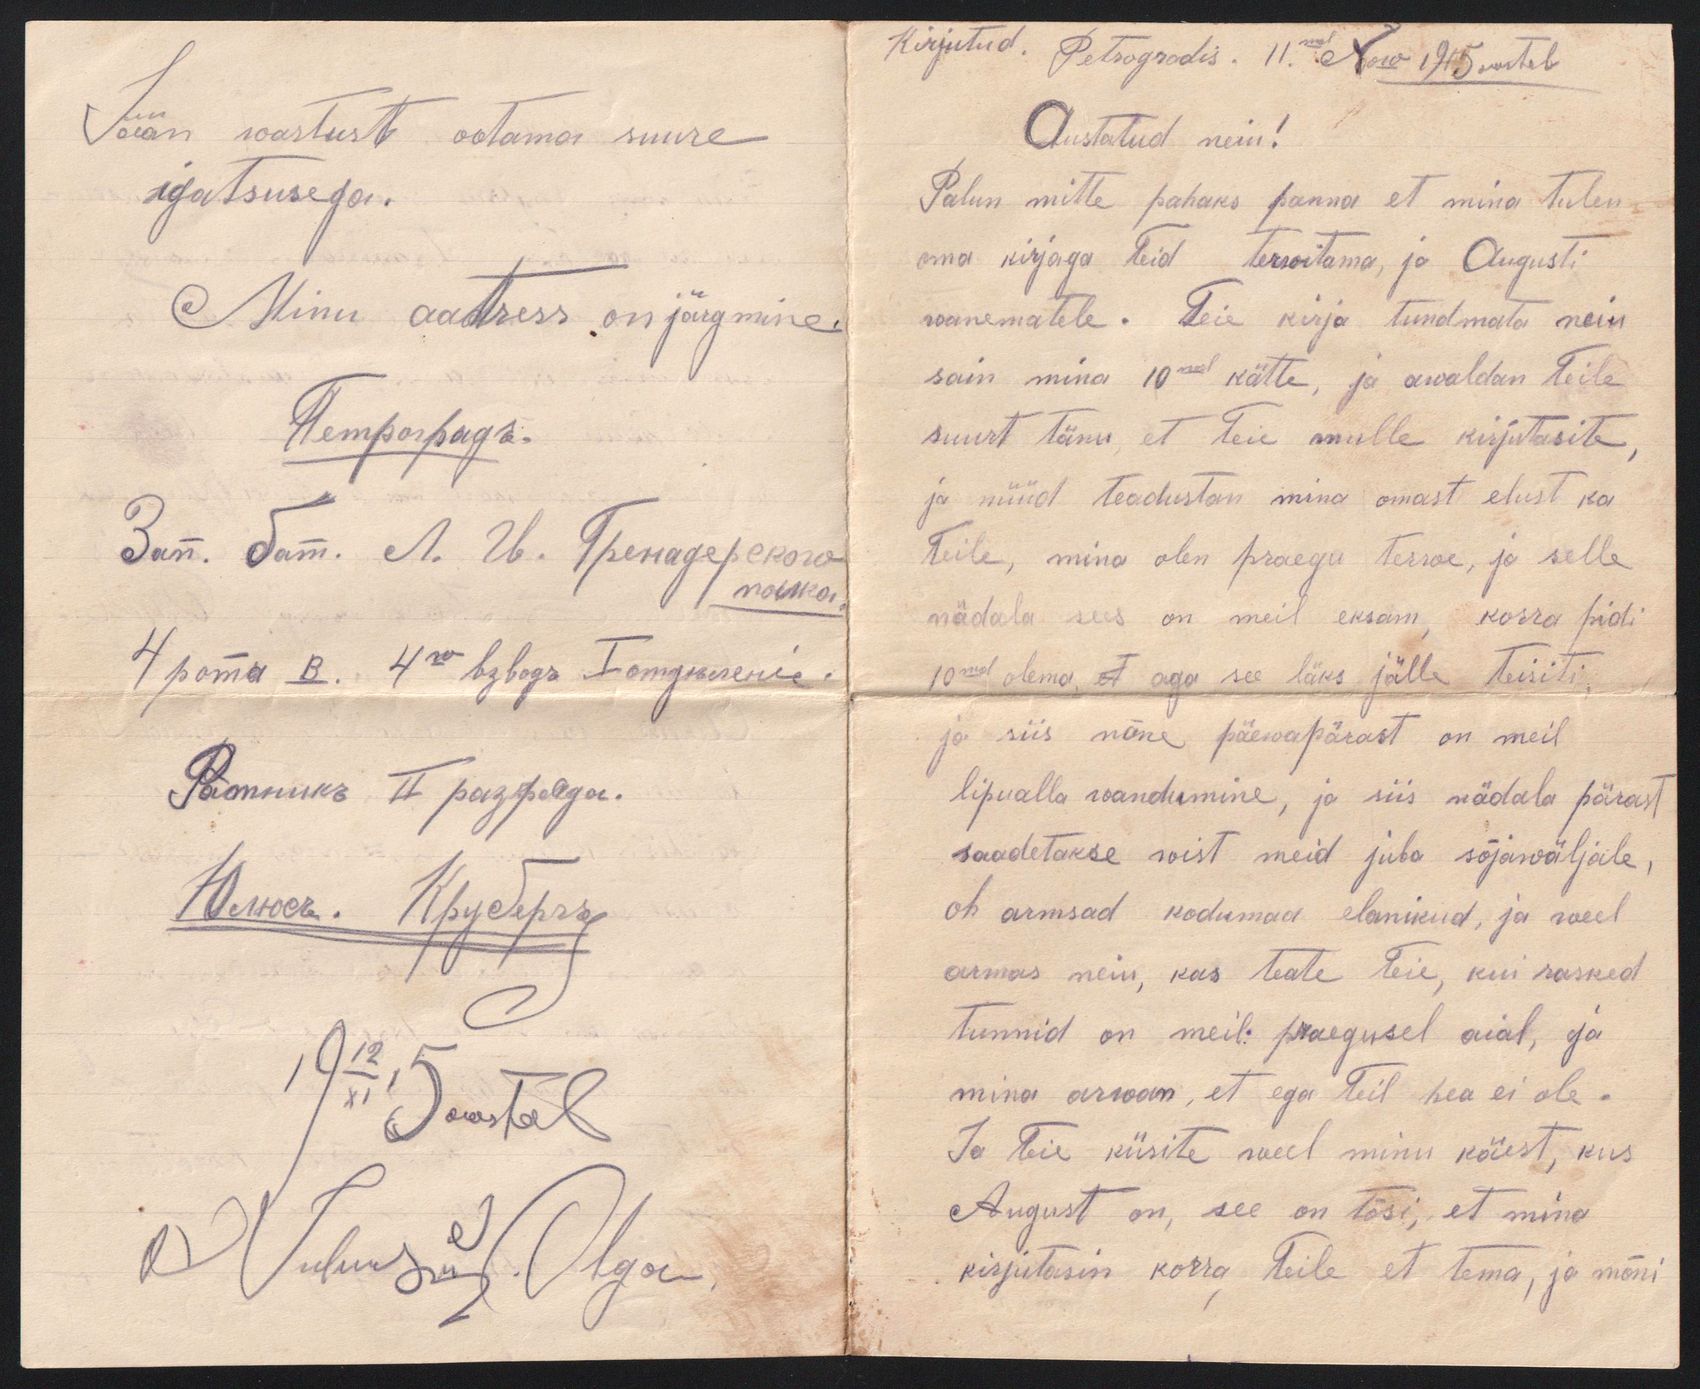 Jään wastust ootama suure
igatsusega.
Minu aadress on järgmine.
Петроградъ.
Зап. бат. Л. Гв. Гренадерскаго
полка.
4 рота В. 4го взводъ I отдѣленіе.
Ратникъ II разряда.
Юлюсъ. Круберъ
19 12/XI 15 aastal
Olga
Kirjutud. Petrogradis. 11.mal Now 1915 aastal
Austatud neiu!
Palun mitte pahaks panna et mina tulen
oma kirjaga Teid terwitama, ja Augusti
wanematele. Teie kirja tundmata neiu
sain mina 10mal kätte, ja awaldan Teile
suurt tänu, et Teie mulle kirjutasite,
ja nüüd teadustan mina omast elust ka
Teile, mina olen praegu terwe, ja selle
nädala sees on meil eksam, korra pidi
10mal olema, aga see läks jälle teisiti,
ja siis mõne päewapärast on meil
lipualla wandumine, ja siis nädala pärast
saadetakse wist meid juba sõjawäljale,
oh armsad kodumaa elanikud, ja weel
armas neiu, kas teate Teie, kui rasked
tunnid on meil praegusel aial, ja
mina arwan, et ega Teil hea ei ole.
Ja Teie küsite weel minu käest, kus
August on, see on tõsi, et mina
kirjutasin korra, Teile et tema, ja mõni